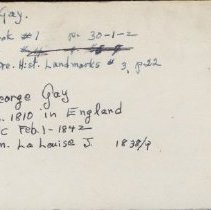 Gay.
ok #1 p. 30-1-2
re. Hist. Landmarks # 3, p.22
eorge Gay
. 1810 in England
c Feb. 1 - 1842
n. La Louise J. 1838/9